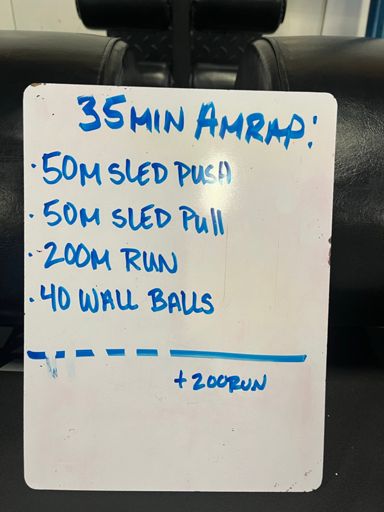 35MIN AMRAP:
· 50M SLED PUSH
· 50M SLED PUll
· 200M RUN
· 40 WALL BALLS
+ 200RUN